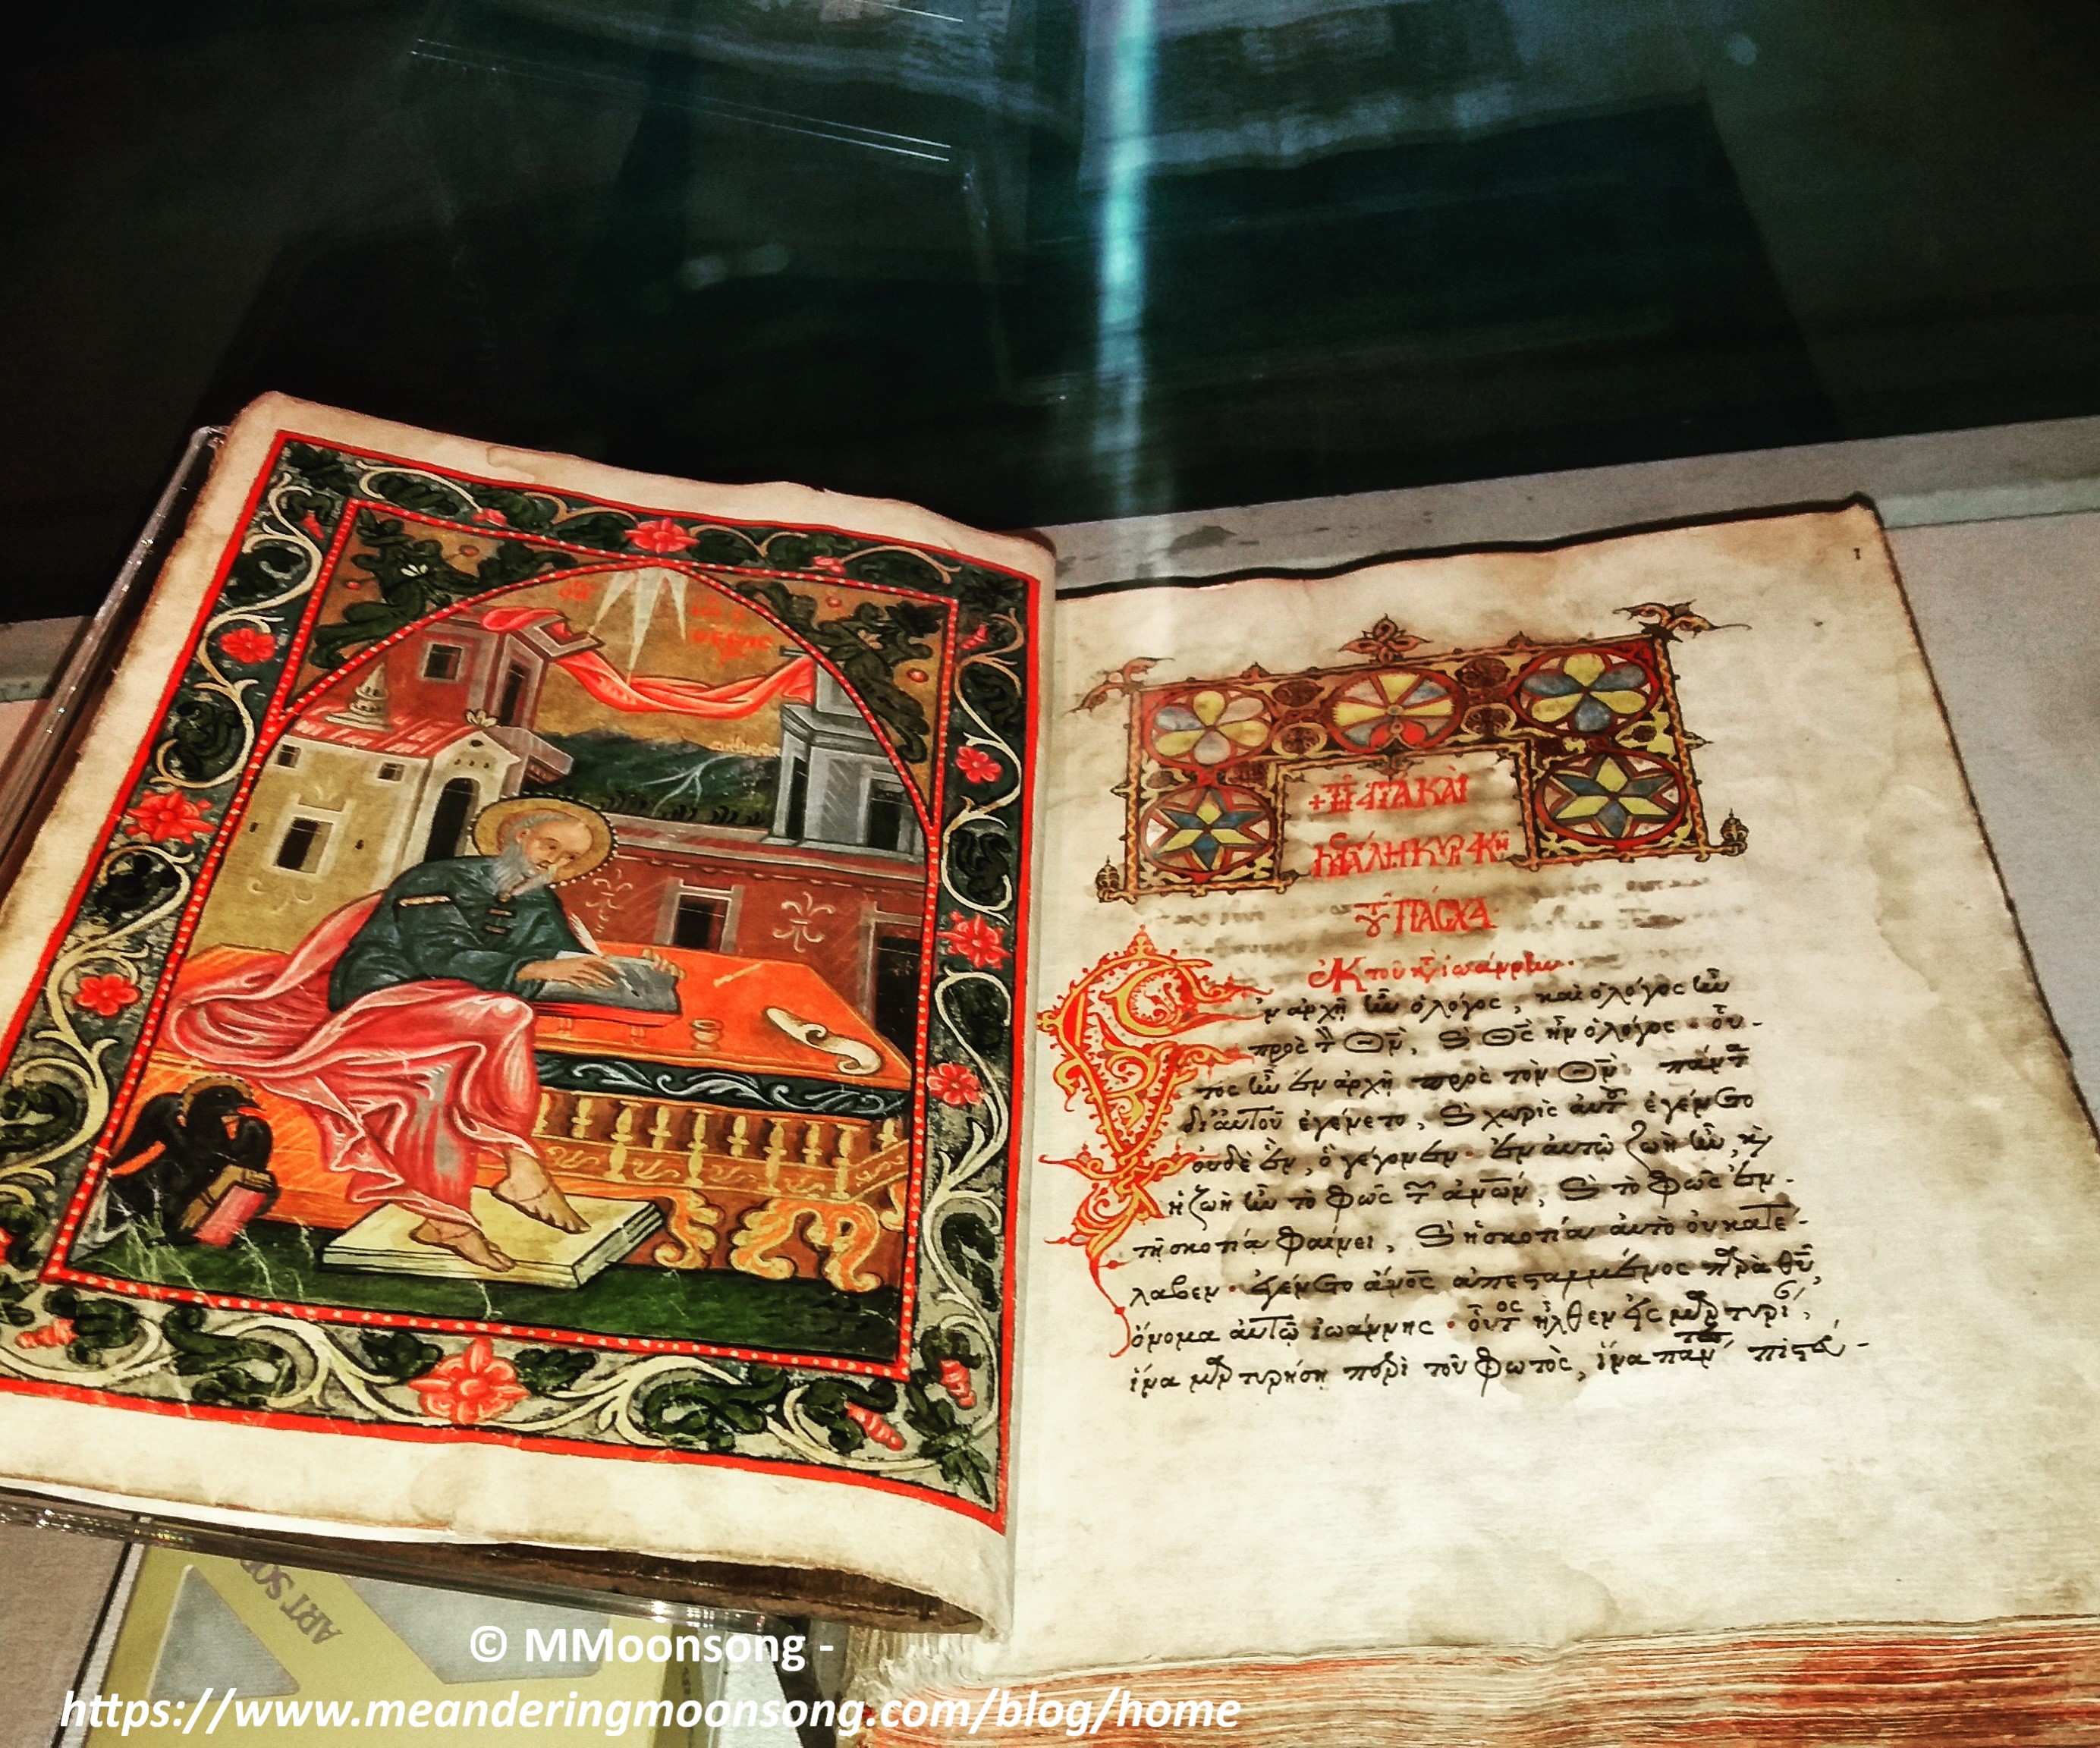 1
+ Τῇ ἁγίᾳ καὶ
μεγάλῃ κυρ‹ια›κῇ
τοῦ ΠΆΣΧΑ
ἐκ τοῦ κ(α)τ(ὰ) ἰωάννην.
Ἐν ἀρχῇ ἦν ὁ λόγος, καὶ ὁ λόγος ἦν
πρὸς τ(ὸν) Θν, κ(αὶ) Θς ἦν ὁ λόγος · οὗ-
τος ἦν ἐν ἀρχῇ πρὸς τὸν Θν· πάντ(α)
δι' αὐτοῦ ἐγένετο, κ(αὶ) χωρὶς αὐτοῦ ἐγένετο
οὐδὲ ἕν, ὃ γέγονεν · ἐν αὐτῷ ζωὴ ἦν, κ(αὶ)
ἡ ζωὴ ἦν τὸ φῶς τ(ῶν) ἀνων, κ(αὶ) τὸ φῶς ἐν
τῇ σκοτίᾳ φαίνει, κ(αὶ) ἡ σκοτία αὐτὸ οὐ κατέ-
λαβεν · ἐγένετο ἄνος ἀπεσταλμένος π(α)ρὰ θυ,
ὄνομα αὐτῷ ἰωάννης · οὗτος ἦλθεν εἰς μ(α)ρτυρί(αν),
ἵνα μ(α)ρτυρήσῃ περὶ τοῦ φωτός, ἵνα πάντ(ες) πιστεύ-
ART SO
© MMoonsong -
https://www.meanderingmoonsong.com/blog/home